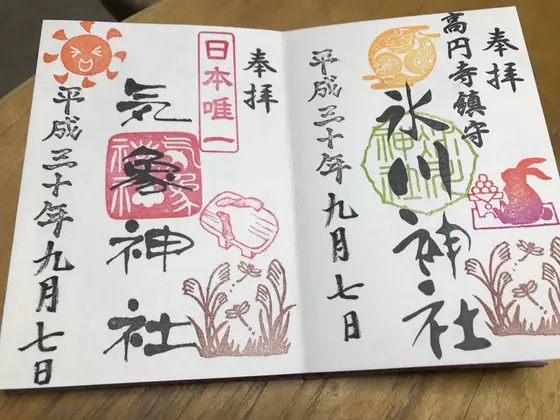 奉拝
高円寺鎮守
氷川神社
平成三十年九月七日
奉拝
日本唯一
気象神社
気象神社
平成三十年九月七日